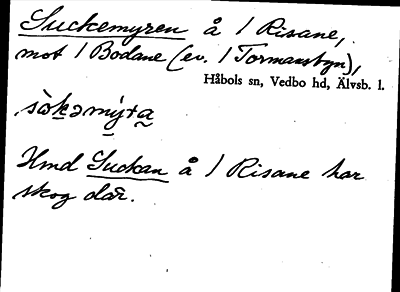 Suckemyren å 1 Risane,
mot 1 Bodane (ev. 1 Tormansbyn),
Håbols sn, Vedbo hd, Älvsb. l.
Hmd Suckan å 1 Risane har
skog där.